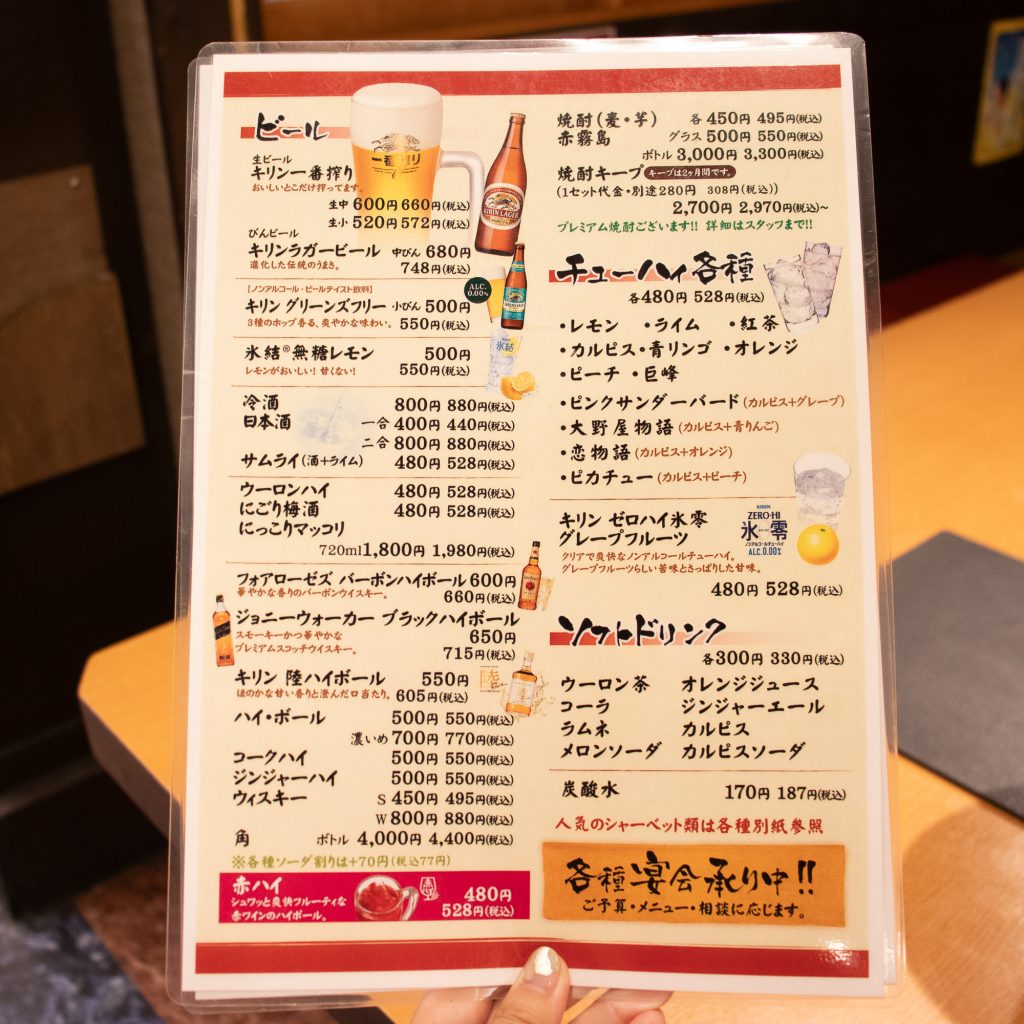 ビール
生ビール
キリン一番搾り
おいしいとこだけ搾ってます。
生中 600円 660円(税込)
生小 520円 572円(税込)
びんビール
キリンラガービール 中びん 680円
進化した伝統のうまさ。 748円(税込)
【ノンアルコール・ビールテイスト飲料】
キリン グリーンズフリー 小びん 500円
3種のホップ香る、爽やかな味わい。 550円(税込)
ALC.
0.00%
一番搾り
KIRIN LAGER
氷結®無糖レモン 500円
レモンがおいしい!甘くない! 550円(税込)
氷結
冷酒 800円 880円(税込)
日本酒 一合 400円 440円(税込)
二合 800円 880円(税込)
サムライ(酒+ライム) 480円 528円(税込)
ウーロンハイ 480円 528円(税込)
にごり梅酒 480円 528円(税込)
にっこりマッコリ
720ml 1,800円 1,980円(税込)
フォアローゼズ バーボンハイボール 600円
華やかな香りのバーボンウイスキー。 660円(税込)
ジョニーウォーカー ブラックハイボール
スモーキーかつ華やかな 650円
プレミアムスコッチウイスキー。 715円(税込)
キリン 陸ハイボール 550円
ほのかな甘い香りと澄んだ口当たり。 605円(税込)
陸
ハイ・ボール 500円 550円(税込)
濃いめ 700円 770円(税込)
コークハイ 500円 550円(税込)
ジンジャーハイ 500円 550円(税込)
ウィスキー S 450円 495円(税込)
W 800円 880円(税込)
角 ボトル 4,000円 4,400円(税込)
※各種ソーダ割りは+70円(税込77円)
赤ハイ
シュワッと爽快フルーティな 480円
赤ワインのハイボール。 528円(税込)
焼酎(麦・芋) 各 450円 495円(税込)
赤霧島 グラス 500円 550円(税込)
ボトル 3,000円 3,300円(税込)
焼酎キープ キープは2ヶ月間です。
(1セット代金・別途280円 308円(税込))
2,700円 2,970円(税込)~
プレミアム焼酎ございます!! 詳細はスタッフまで!!
チューハイ各種
各480円 528円(税込)
・レモン ・ライム ・紅茶
・カルピス・青リンゴ ・オレンジ
・ピーチ ・巨峰
・ピンクサンダーバード(カルピス+グレープ)
・大野屋物語(カルピス+青りんご)
・恋物語(カルピス+オレンジ)
・ピカチュー(カルピス+ピーチ)
キリン ゼロハイ氷零
グレープフルーツ
KIRIN
ZERO-HI
氷零
ノンアルコールチューハイ
ALC.0.00%
クリアで爽快なノンアルコールチューハイ。
グレープフルーツらしい苦味とさっぱりした甘味。
480円 528円(税込)
ソフトドリンク
各300円 330円(税込)
ウーロン茶 オレンジジュース
コーラ ジンジャーエール
ラムネ カルピス
メロンソーダ カルピスソーダ
炭酸水 170円 187円(税込)
人気のシャーベット類は各種別紙参照
各種宴会承り中!!
ご予算・メニュー・相談に応じます。